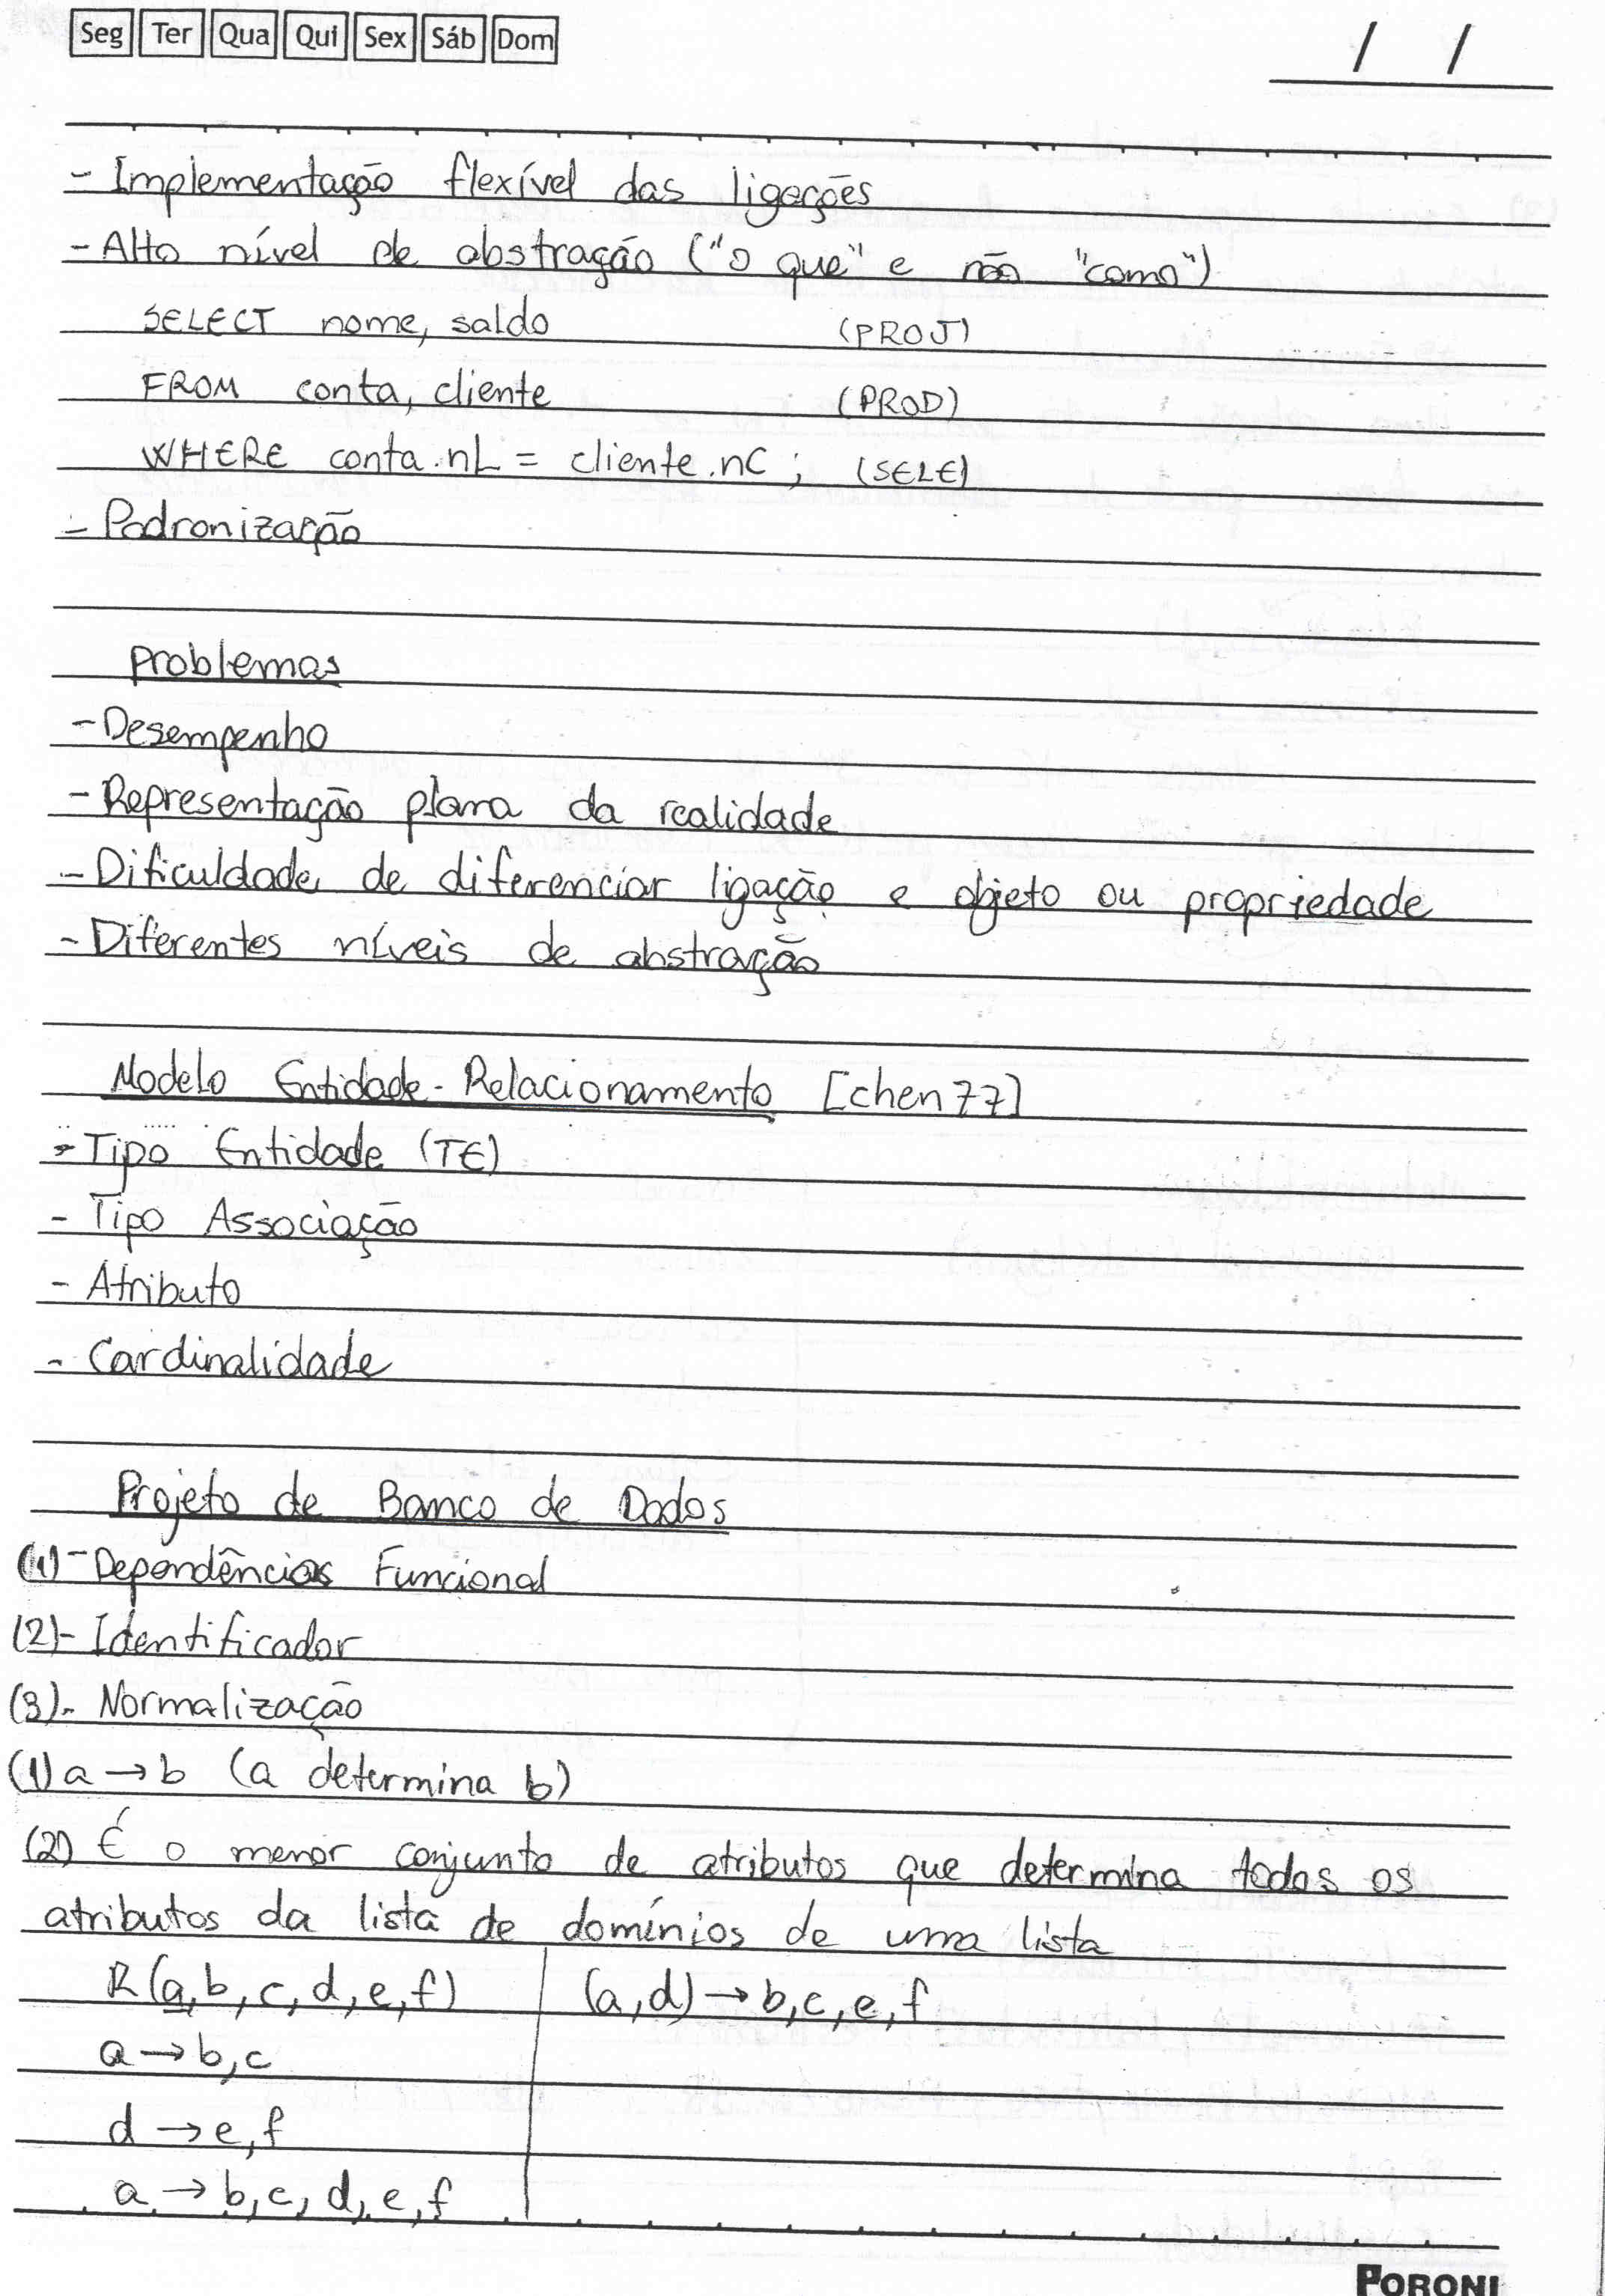 Seg Ter Qua Qui Sex Sáb Dom
/ /
- Implementação flexível das ligações
- Alto nível de abstração ("o que" e não "como")
SELECT nome, saldo (PROJ)
FROM conta, cliente (PROD)
WHERE conta.nL = cliente.nC; (SELE)
- Padronização
Problemas
- Desempenho
- Representação plana da realidade
- Dificuldade de diferenciar ligação e objeto ou propriedade
- Diferentes níveis de abstração
Modelo Entidade-Relacionamento [chen 77]
- Tipo Entidade (TE)
- Tipo Associação
- Atributo
- Cardinalidade
Projeto de Banco de Dados
(1)- Dependências Funcional
(2)- Identificador
(3)- Normalização
(1) a → b (a determina b)
(2) É o menor conjunto de atributos que determina todos os
atributos da lista de domínios de uma lista
R(a,b,c,d,e,f) (a,d) → b,c,e,f
a → b,c
d → e,f
a → b,c,d,e,f
PORONI